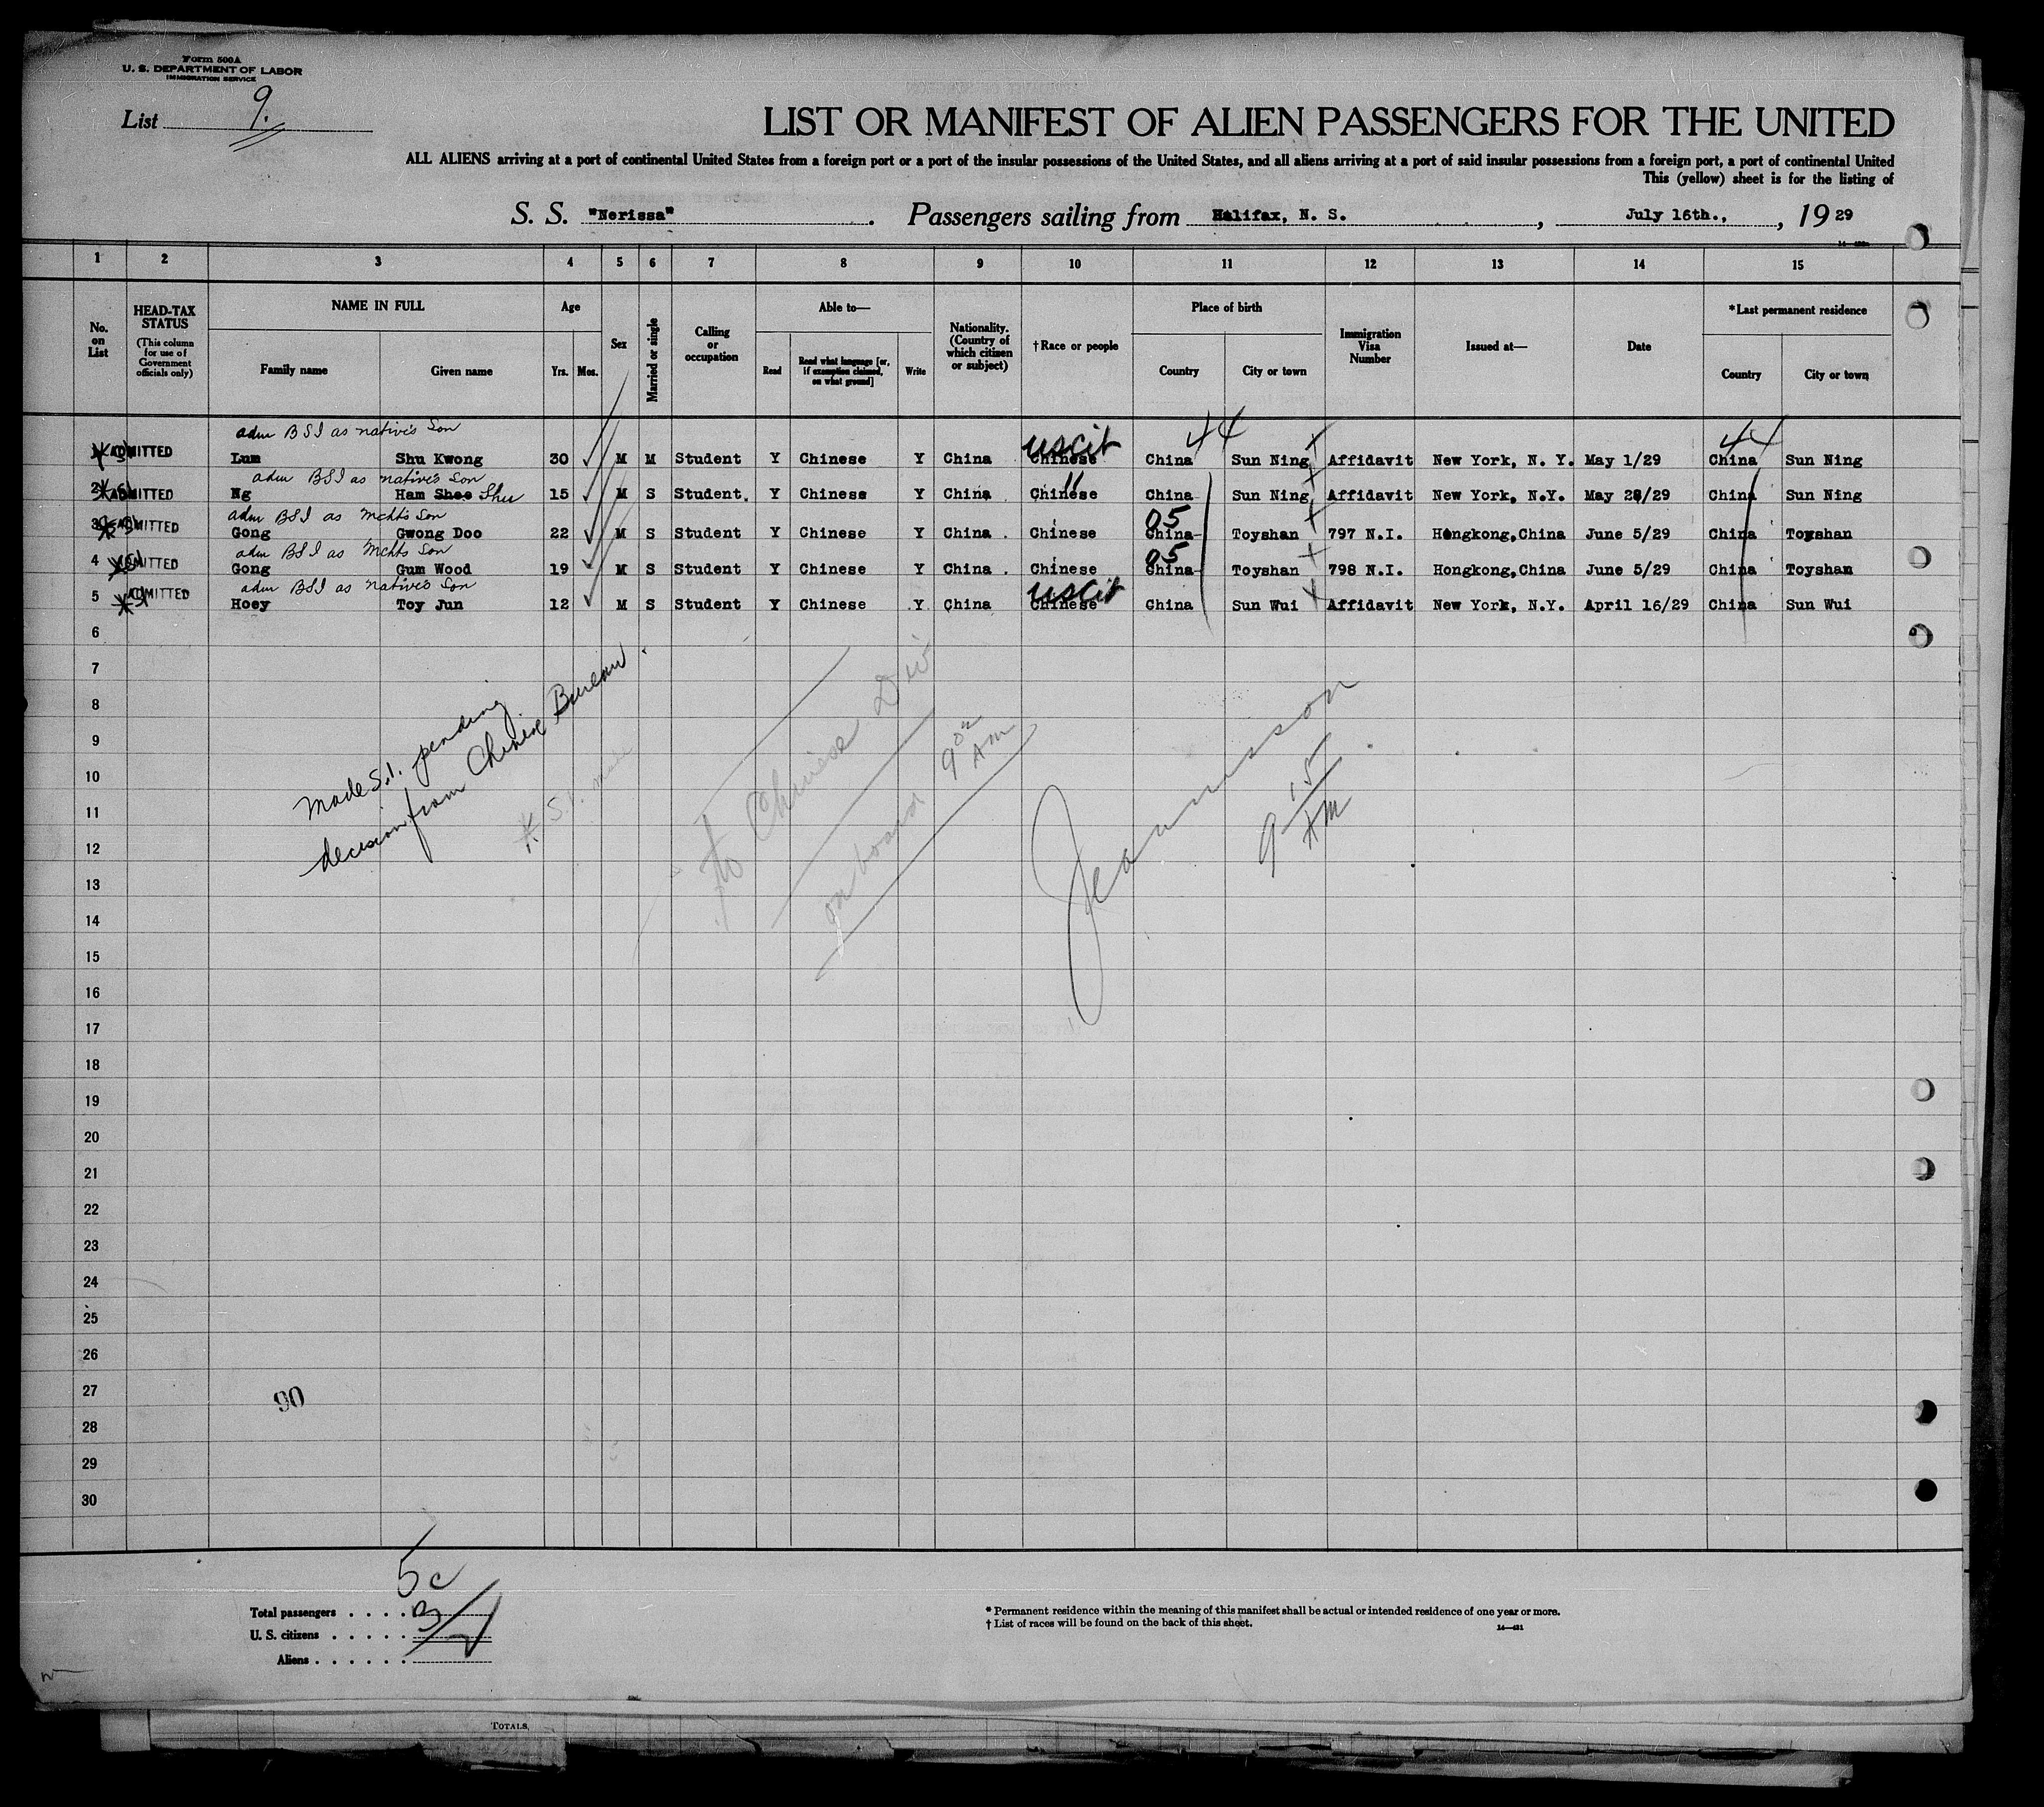 Form 500A
U. S. DEPARTMENT OF LABOR
IMMIGRATION SERVICE
List 9.
LIST OR MANIFEST OF ALIEN PASSENGERS FOR THE UNITED
ALL ALIENS arriving at a port of continental United States from a foreign port or a port of the insular possessions of the United States, and all aliens arriving at a port of said insular possessions from a foreign port, a port of continental United
This (yellow) sheet is for the listing of
S. S. "Nerissa". Passengers sailing from Halifax, N. S., July 16th., , 19 29
1 2 3 4 5 6 7 8 9 10 11 12 13 14 15
No. on List
HEAD-TAX STATUS (This column for use of Government officials only)
NAME IN FULL
Family name Given name
Age
Yrs. Mos.
Sex
Married or single
Calling or occupation
Able to—
Read Read what language [or, if exemption claimed, on what ground] Write
Nationality. (Country of which citizen or subject)
†Race or people
Place of birth
Country City or town
Immigration Visa Number
Issued at—
Date
*Last permanent residence
Country City or town
adm BSI as native's Son uscit 44 44
1 ADMITTED Lum Shu Kwong 30 M M Student Y Chinese Y China Chinese China Sun Ning Affidavit New York, N. Y. May 1/29 China Sun Ning
adm BSI as native's Son
2 ADMITTED Ng Ham Shee Shu 15 M S Student. Y Chinese Y China Chinese China Sun Ning Affidavit New York, N.Y. May 28/29 China Sun Ning
adm BSI as Mcht's Son 05
3 ADMITTED Gong Gwong Doo 22 M S Student Y Chinese Y China Chinese China Toyshan 797 N.I. Hongkong, China June 5/29 China Toyshan
adm BSI as Mchts Son 05
4 ADMITTED Gong Gum Wood 19 M S Student Y Chinese Y China Chinese China Toyshan 798 N.I. Hongkong, China June 5/29 China Toyshan
adm BSI as native's Son uscit
5 ADMITTED Hoey Toy Jun 12 M S Student Y Chinese Y China Chinese China Sun Wui Affidavit New York, N.Y. April 16/29 China Sun Wui
6
7
8
9
10
11
12
13
14
15
16
17
18
19
20
21
22
23
24
25
26
27
28
29
30
Made S.I. pending
decision from Chinese Bureau.
To Chinese Div
on board 9 00 AM
9 15 AM
90
5c
Total passengers . . . . 3
U. S. citizens . . . . .
Aliens . . . . . .
* Permanent residence within the meaning of this manifest shall be actual or intended residence of one year or more.
† List of races will be found on the back of this sheet.
14—421
TOTALS,